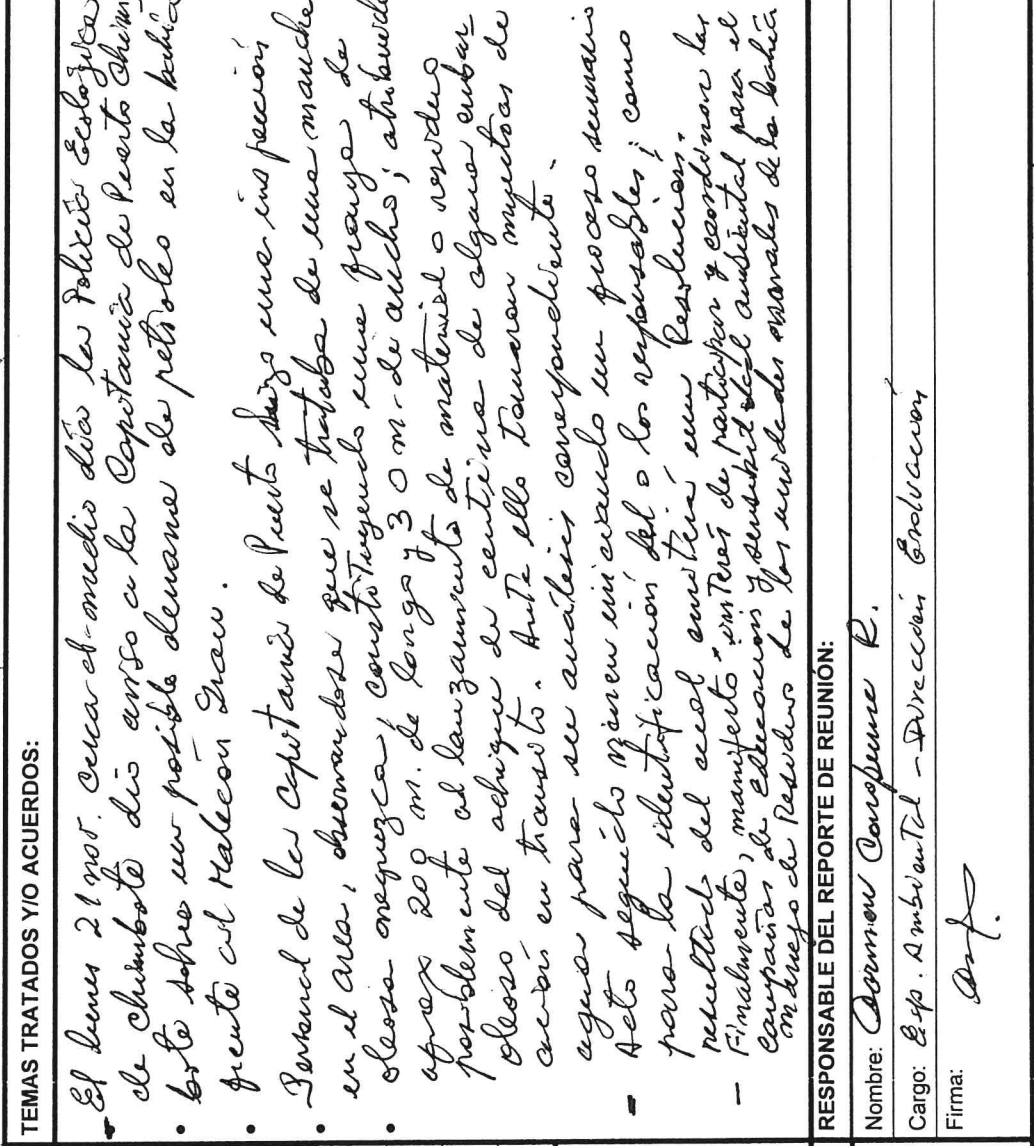 TEMAS TRATADOS Y/O ACUERDOS:
- El lunes 21 nov. cerca al medio día la Policía Ecológica
de Chimbote dió aviso a la Capitanía de Puerto Chim
bote sobre un posible derrame de petróleo en la bahía
frente al Malecón Grau.
- Personal de la Capitanía de Puerto hizo una inspección
en el area, observandose que se trataba de una mancha
oleosa negruzca, constituyendo una franja de
aprox 200 m. de largo y 30 m. de ancho; atribuida
posiblemente al lanzamiento de material o residuo
oleoso del achique de centina de alguna embar
cación en transito. Ante ello tomaron muestras de
agua para su análisis correspondiente.
- Acto seguido vienen iniciando un proceso sumario
para la identificación del o los responsables; como
resultado del cual emitirá una Resolucion.
- Finalmente, manifestó interés de participar y coordinar las
campañas de educacion y sensibilidad ambiental para el
manejo de Residuos de las unidades navales de la bahía
RESPONSABLE DEL REPORTE DE REUNIÓN:
Nombre: Carmen R.
Cargo: Esp. Ambiental - Dirección Evaluación
Firma: